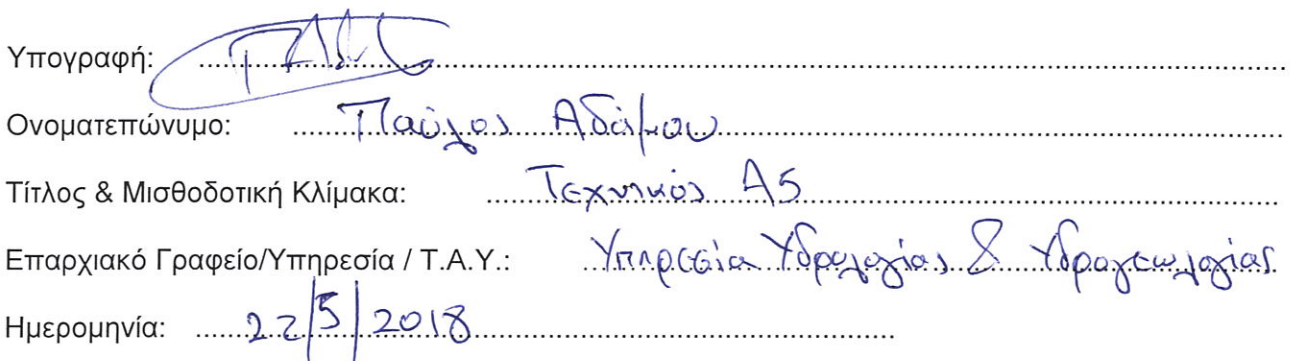 Υπογραφή:
Ονοματεπώνυμο: Παύλος Αδάμου
Τίτλος & Μισθοδοτική Κλίμακα: Τεχνικός Α5
Επαρχιακό Γραφείο/Υπηρεσία / Τ.Α.Υ.: Υπηρεσία Υδρολογίας & Υδρογεωλογίας
Ημερομηνία: 22/5/2018